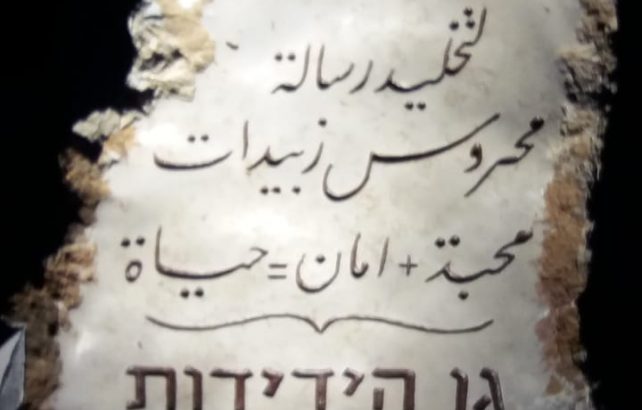 لتخليد رسالة
محروس زبيدات
محبة + امان = حياة
גן הידידות